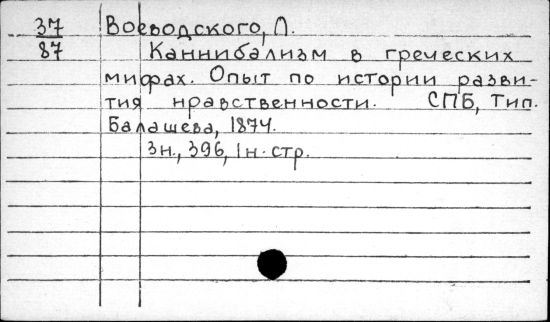 37 Воеводского, Л.
87 Каннибализм в греческих
мифах. Опыт по истории разви-
тия нравственности. СПБ, Тип.
Балашева, 1874.
3н., 396, 1н. стр.